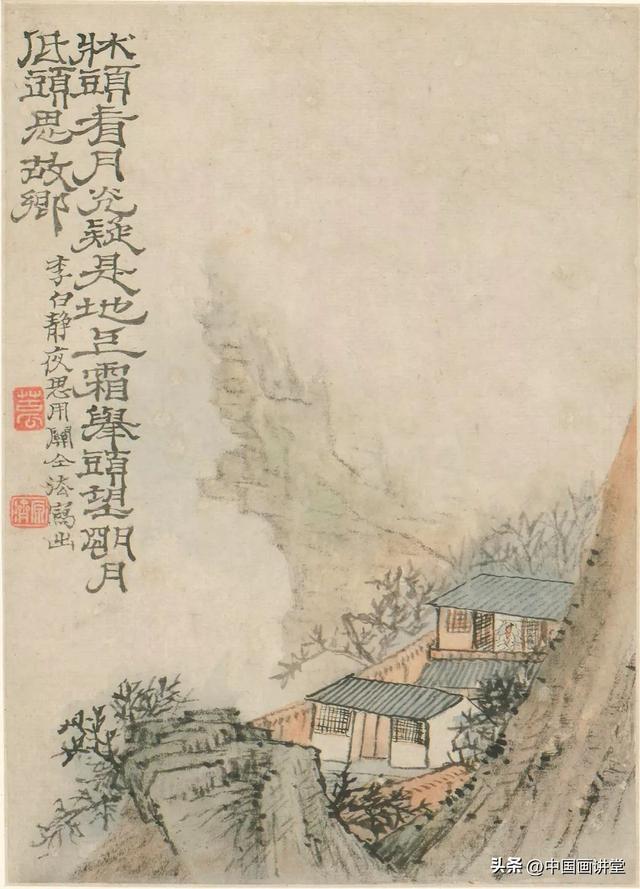 牀頭看月光疑是地上霜舉頭望明月
低頭思故鄉
李白靜夜思用關仝法寫出
原濟
头条 @中国画讲堂